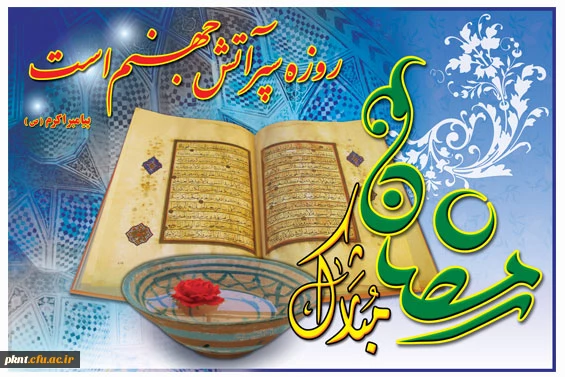 روزه سپر آتش جهنم است
پیامبر اکرم (ص)
رمضان
مبارک
pknt.cfu.ac.ir